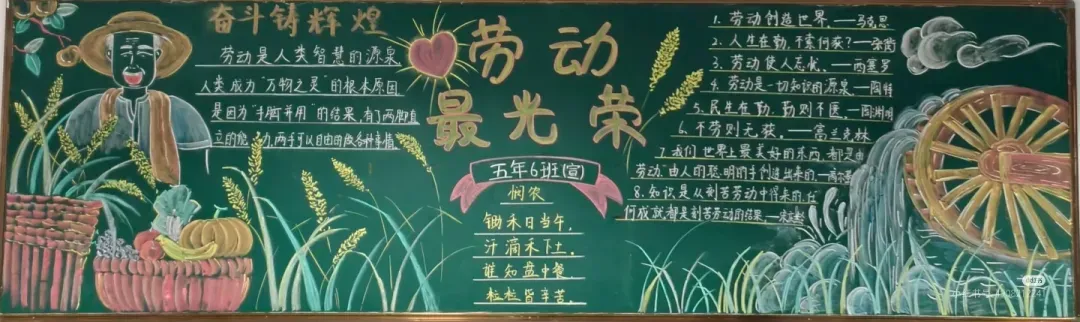 奋斗铸辉煌
劳动是人类智慧的源泉,
人类成为“万物之灵”的根本原因
是因为“手脚并用”的结果,有了两脚直
立的能力,两手可以自由的做各种事情
劳动
最光荣
五年6班(宣)
悯农
锄禾日当午,
汗滴禾下土。
谁知盘中餐
粒粒皆辛苦。
1. 劳动创造世界。——马克思
2. 人生在勤,不索何获?——张衡
3. 劳动使人忘忧。——西塞罗
4. 劳动是一切知识的源泉——陶铸
5. 民生在勤,勤则不匮——陶渊明
6. 不劳则无获。——富兰克林
7. 我们世界上最美好的东西,都是由
劳动,由人的聪明的手创造出来的—高尔基
8. 知识是从刻苦劳动中得来的,任
何成就都是刻苦劳动的结果——宋庆龄
小红书